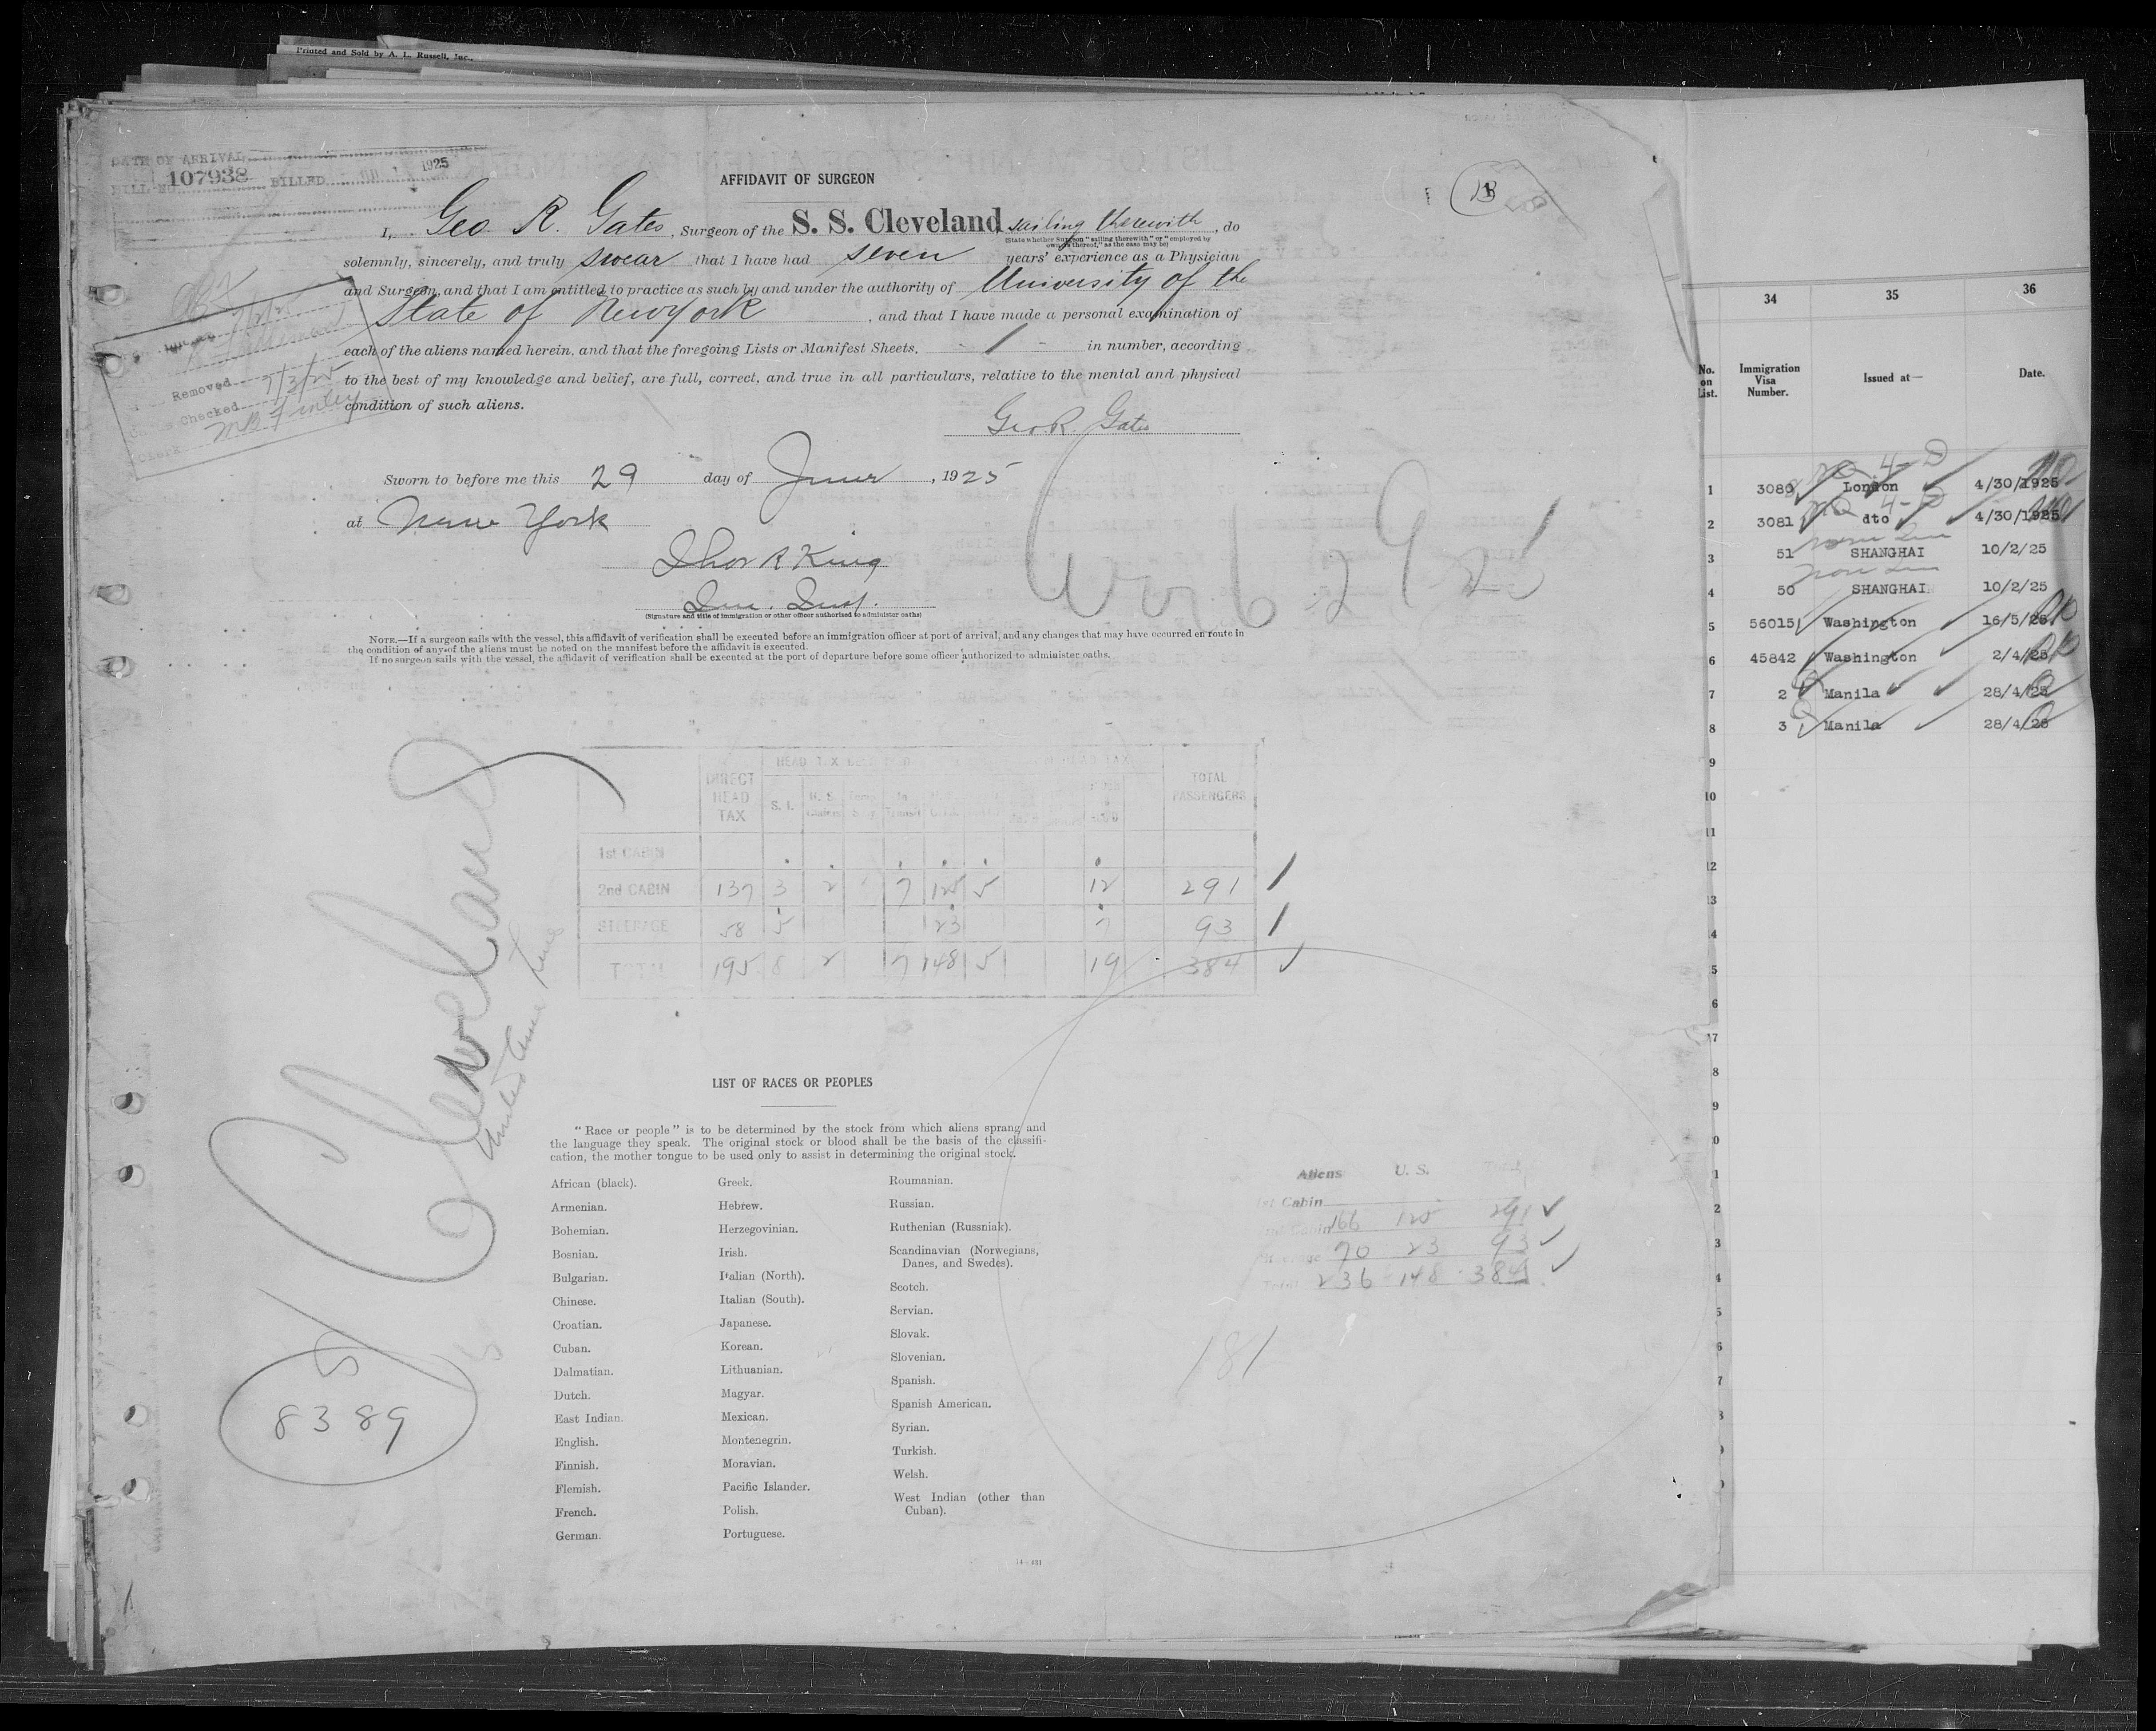 Printed and Sold by A. L. Russell, Inc.,
DATE OF ARRIVAL
BILL NO. 107938 BILLED 1925
AFFIDAVIT OF SURGEON
I, Geo. R. Gates, Surgeon of the S. S. Cleveland, sailing therewith, do
(State whether Surgeon "sailing therewith" or "employed by
owners thereof," as the case may be)
solemnly, sincerely, and truly swear that I have had seven years' experience as a Physician
and Surgeon, and that I am entitled to practice as such by and under the authority of University of the
State of New York, and that I have made a personal examination of
each of the aliens named herein, and that the foregoing Lists or Manifest Sheets, - 1 - in number, according
to the best of my knowledge and belief, are full, correct, and true in all particulars, relative to the mental and physical
condition of such aliens.
Removed 7/3/25
Checked
Clerk
Geo. R. Gates
Sworn to before me this 29 day of June, 1925
at New York
Thos R King
(Signature and title of immigration or other officer authorized to administer oaths)
NOTE.—If a surgeon sails with the vessel, this affidavit of verification shall be executed before an immigration officer at port of arrival, and any changes that may have occurred en route in
the condition of any of the aliens must be noted on the manifest before the affidavit is executed.
If no surgeon sails with the vessel, the affidavit of verification shall be executed at the port of departure before some officer authorized to administer oaths.
DIRECT HEAD TAX S. I. TOTAL PASSENGERS
1st CABIN
2nd CABIN 137 3 2 7 125 5 12 291
STEERAGE 58 5 23 7 93
TOTAL 195 8 2 7 148 5 19 384
Cleveland
United Amer Lines
8389
LIST OF RACES OR PEOPLES
"Race or people" is to be determined by the stock from which aliens sprang and
the language they speak. The original stock or blood shall be the basis of the classifi-
cation, the mother tongue to be used only to assist in determining the original stock.
African (black).
Armenian.
Bohemian.
Bosnian.
Bulgarian.
Chinese.
Croatian.
Cuban.
Dalmatian.
Dutch.
East Indian.
English.
Finnish.
Flemish.
French.
German.
Greek.
Hebrew.
Herzegovinian.
Irish.
Italian (North).
Italian (South).
Japanese.
Korean.
Lithuanian.
Magyar.
Mexican.
Montenegrin.
Moravian.
Pacific Islander.
Polish.
Portuguese.
Roumanian.
Russian.
Ruthenian (Russniak).
Scandinavian (Norwegians,
Danes, and Swedes).
Scotch.
Servian.
Slovak.
Slovenian.
Spanish.
Spanish American.
Syrian.
Turkish.
Welsh.
West Indian (other than
Cuban).
Aliens U. S. Total
1st Cabin
2nd Cabin 166 125 291
Steerage 70 23 93
Total 236 148 384
181
34 35 36
No. on List. Immigration Visa Number. Issued at— Date.
1 3080 London 4/30/1925
2 3081 dto 4/30/1925
3 51 SHANGHAI 10/2/25
4 50 SHANGHAI 10/2/25
5 56015 Washington 16/5/25
6 45842 Washington 2/4/25
7 2 Manila 28/4/25
8 3 Manila 28/4/25
9
10
11
12
13